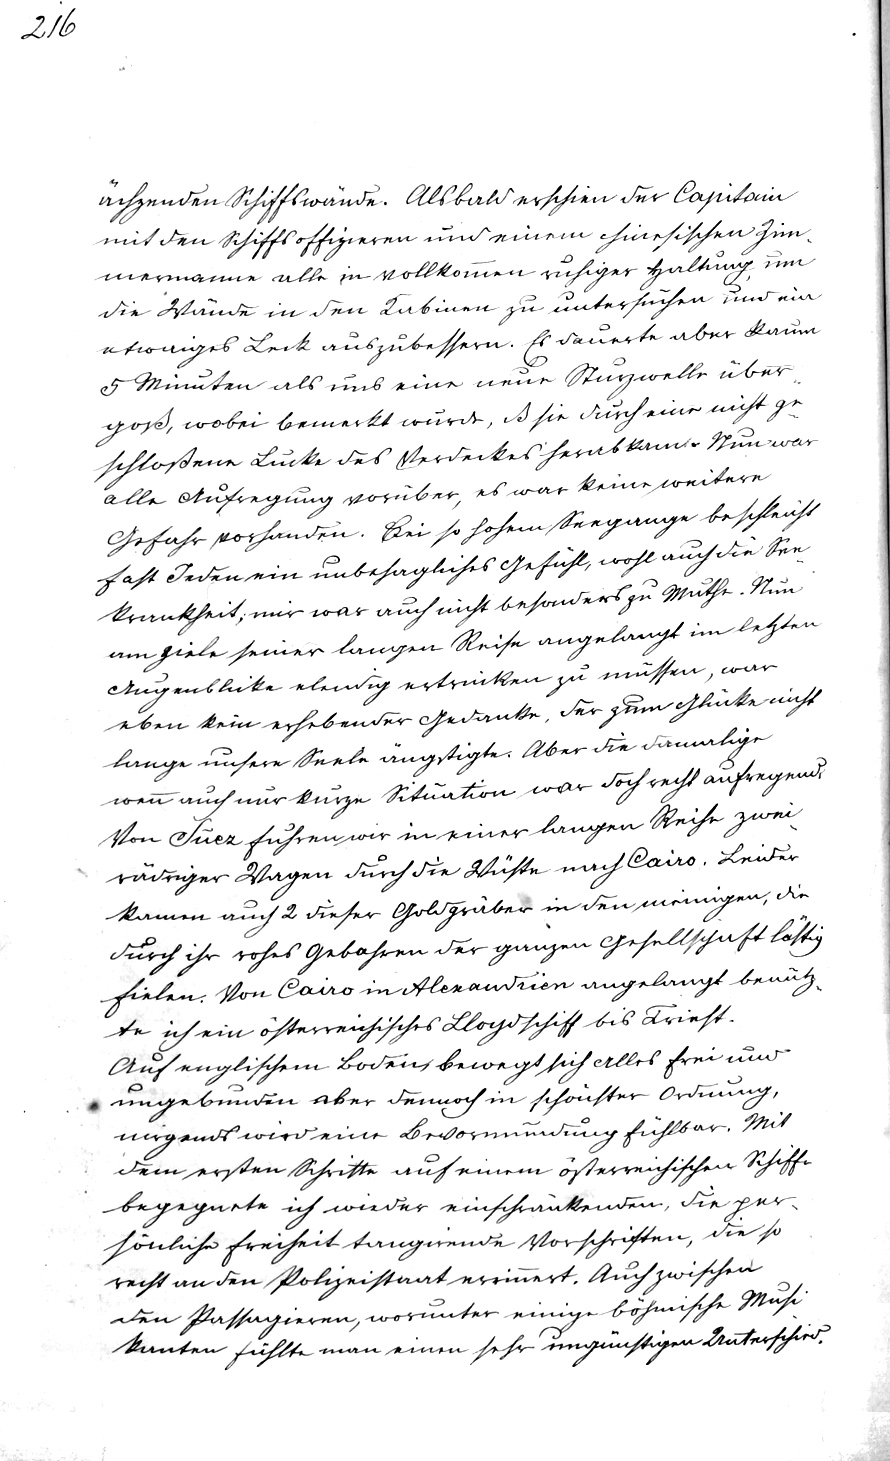 216
ächzenden Schiffswände. Alsbald erschien der Capitain
mit den Schiffsoffizieren und einem chinesischen Zim-
mermanne alle in vollkom̅en ruhiger Haltung um
die Wände in den Kabinen zu untersuchen und ein
etwaiges Leck auszubessern. Es dauerte aber kaum
5 Minuten als uns eine neue Sturzwelle über-
goß, wobei bemerkt wurde, ß sie durch eine nicht ge-
schloßene Lucke des Verdeckes herabkam. Nun war
alle Aufregung vorüber, es war keine weitere
Gefahr vorhanden. Bei so hohem Seegange beschleicht
fast Jeden ein unbehagliches Gefühl, wohl auch die See-
krankheit; mir war auch nicht besonders zu Muthe. Nun
am Ziele seiner langen Reise angelangt im letzten
Augenblicke elendig ertrinken zu müssen, war
eben kein erhebender Gedanke, der zum Glücke nicht
lange unsere Seele ängstigte. Aber die damalige
wen̅ auch nur kurze Situation war doch recht aufregend.
Von Suez fuhren wir in einer langen Reihe zwei-
rädriger Wagen durch die Wüste nach Cairo. Leider
kamen auch 2 dieser Goldgräber in den meinigen, die
durch ihr rohes Gebahren der ganzen Gesellschaft lästig
fielen. Von Cairo in Alexandrien angelangt benütz-
te ich ein österreichisches Lloydschiff bis Triest.
Auf englischem Boden, bewegt sich alles frei und
ungebunden aber dennoch in schönster Ordnung,
nirgends wird eine Bevormundung fühlbar. Mit
dem ersten Schritte auf einem österreichischen Schiffe
begegnete ich wieder einschränkenden, die per-
sönliche Freiheit tangirende Vorschriften, die so
recht an den Polizeistaat erin̅ert. Auch zwischen
den Passagieren, worunter einige böhmische Musi
kanten fühlte man einen sehr ungünstigen Unterschied.